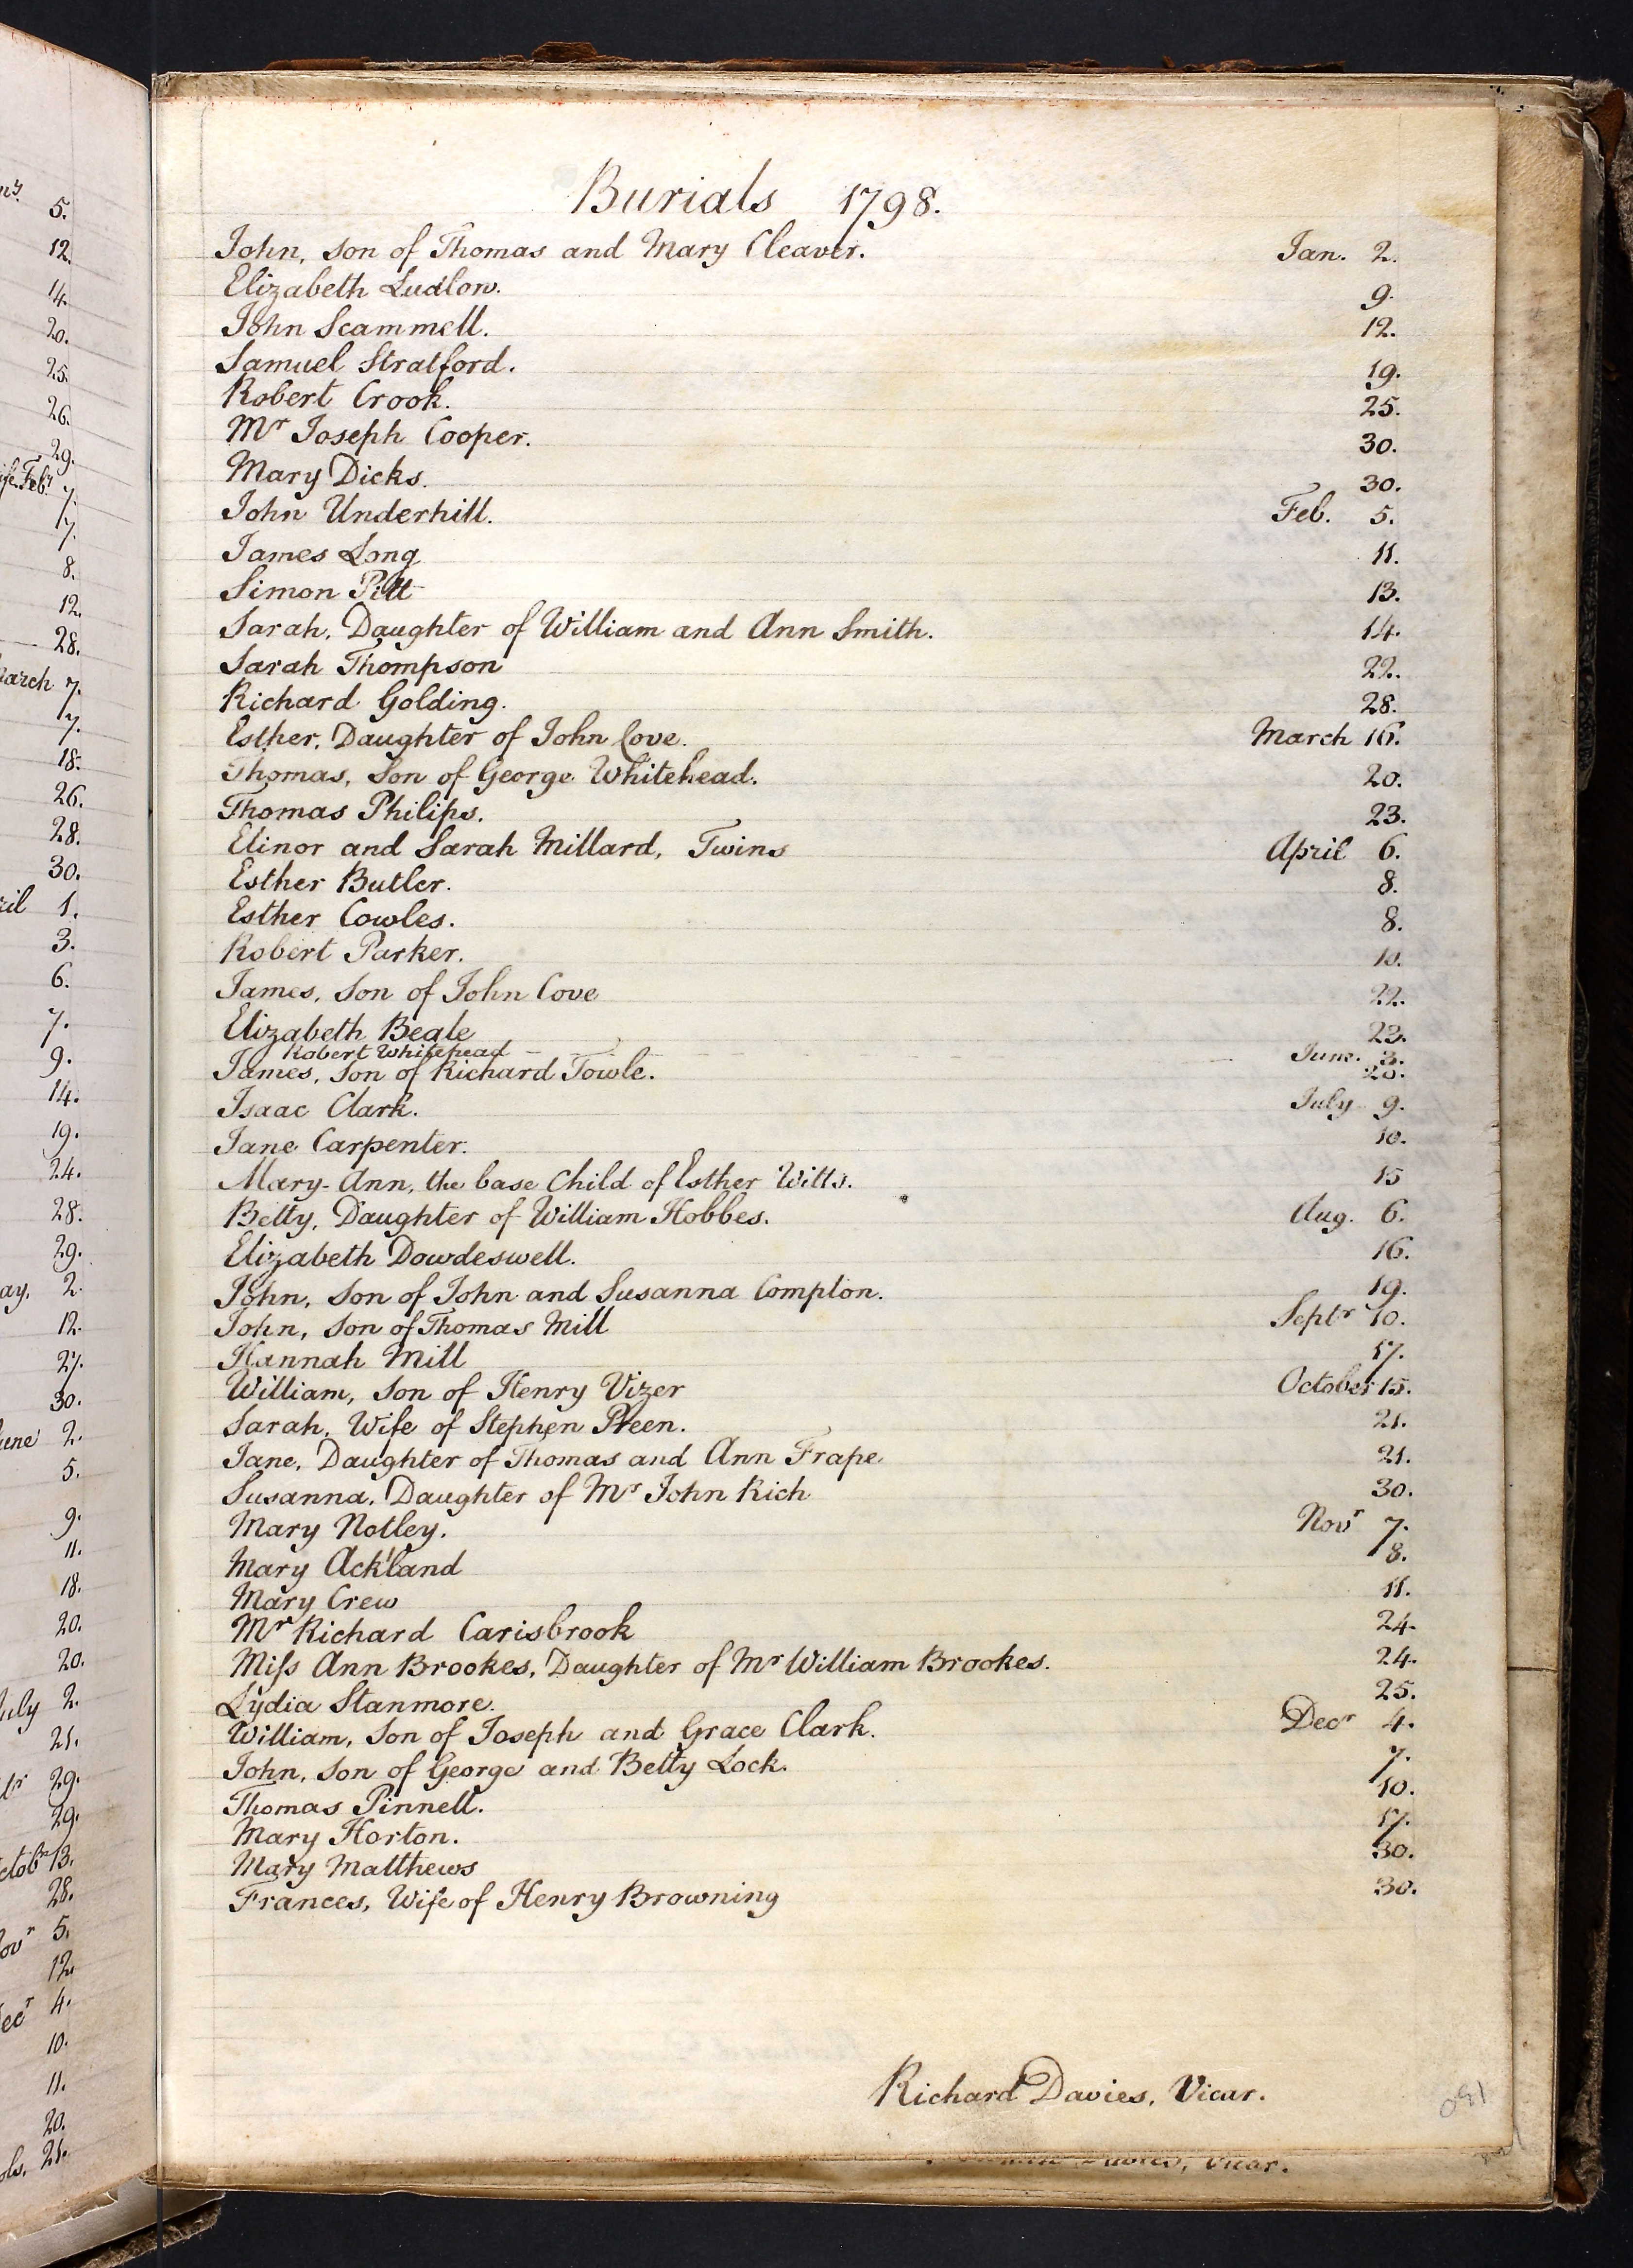 Burials 1798.
John, Son of Thomas and Mary Cleaver. Jan. 2.
Elizabeth Ludlow. 9.
John Scammell. 12.
Samuel Stratford. 19.
Robert Crook. 25.
Mr Joseph Cooper. 30.
Mary Dicks. 30.
John Underhill. Feb. 5.
James Long 11.
Simon Pitt 13.
Sarah, Daughter of William and Ann Smith. 14.
Sarah Thompson 22.
Richard Golding. 28.
Esther, Daughter of John Cove. March 16.
Thomas, Son of George Whitehead. 20.
Thomas Philips. 23.
Elinor and Sarah Millard, Twins April 6.
Esther Butler. 8.
Esther Cowles. 8.
Robert Parker. 10.
James, Son of John Cove 22.
Elizabeth Beale 23.
Robert Whitehead June. 3.
James, Son of Richard Towle. 20.
Isaac Clark. July 9.
Jane Carpenter. 10.
Mary-Ann, the base Child of Esther Witts. 15
Betty, Daughter of William Hobbes. Aug. 6.
Elizabeth Dowdeswell. 16.
John, Son of John and Susanna Compton. 19.
John, Son of Thomas Mill Septr 10.
Hannah Mill 17.
William, Son of Henry Vizer October 15.
Sarah, Wife of Stephen Preen. 21.
Jane, Daughter of Thomas and Ann Frape. 21.
Susanna, Daughter of Mr John Rich 30.
Mary Notley. Novr 7.
Mary Ackland 8.
Mary Crew 11.
Mr Richard Carisbrook 24.
Miss Ann Brookes, Daughter of Mr William Brookes. 24.
Lydia Stanmore. 25.
William, Son of Joseph and Grace Clark. Decr 4.
John, Son of George and Betty Lock. 7.
Thomas Pinnell. 10.
Mary Horton. 17.
Mary Matthews 30.
Frances, Wife of Henry Browning 30.
Richard Davies, Vicar.
Vicar.
5.
12.
14.
20.
25.
26.
29.
Feby 7.
7.
8.
12.
28.
7.
7.
18.
26.
28.
30.
1.
3.
6.
7.
9.
14.
19.
24.
28.
29.
2.
12.
27.
30.
2.
5.
9.
11.
18.
20.
20.
2.
21.
29.
29.
13.
28.
5.
12.
4.
10.
11.
20.
21.